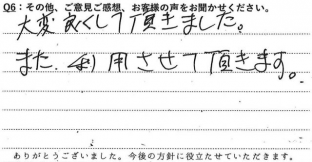 Q6：その他、ご意見ご感想、お客様の声をお聞かせください。
大変良くして頂きました。
また、利用させて頂きます。
ありがとうございました。今後の方針に役立たせていただきます。